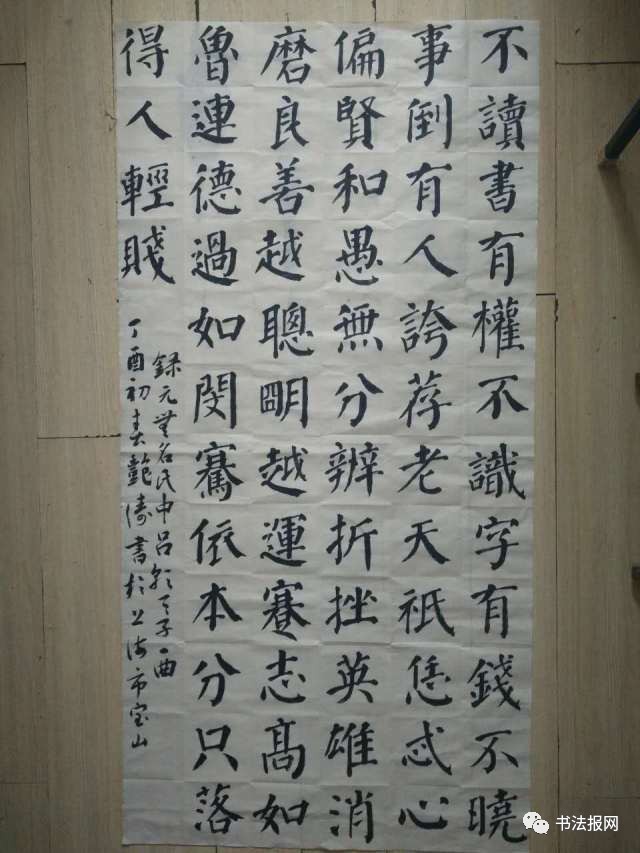 不讀書有權不識字有錢不曉
事倒有人誇荐老天祇恁忒心
偏賢和愚無分辨折挫英雄消
磨良善越聰朙越運賽志高如
魯連德過如閔騫依本分只落
得人輕賤
録元無名氏中呂朝天子一首
丁酉初春濤書於上海市宝山
书法报网